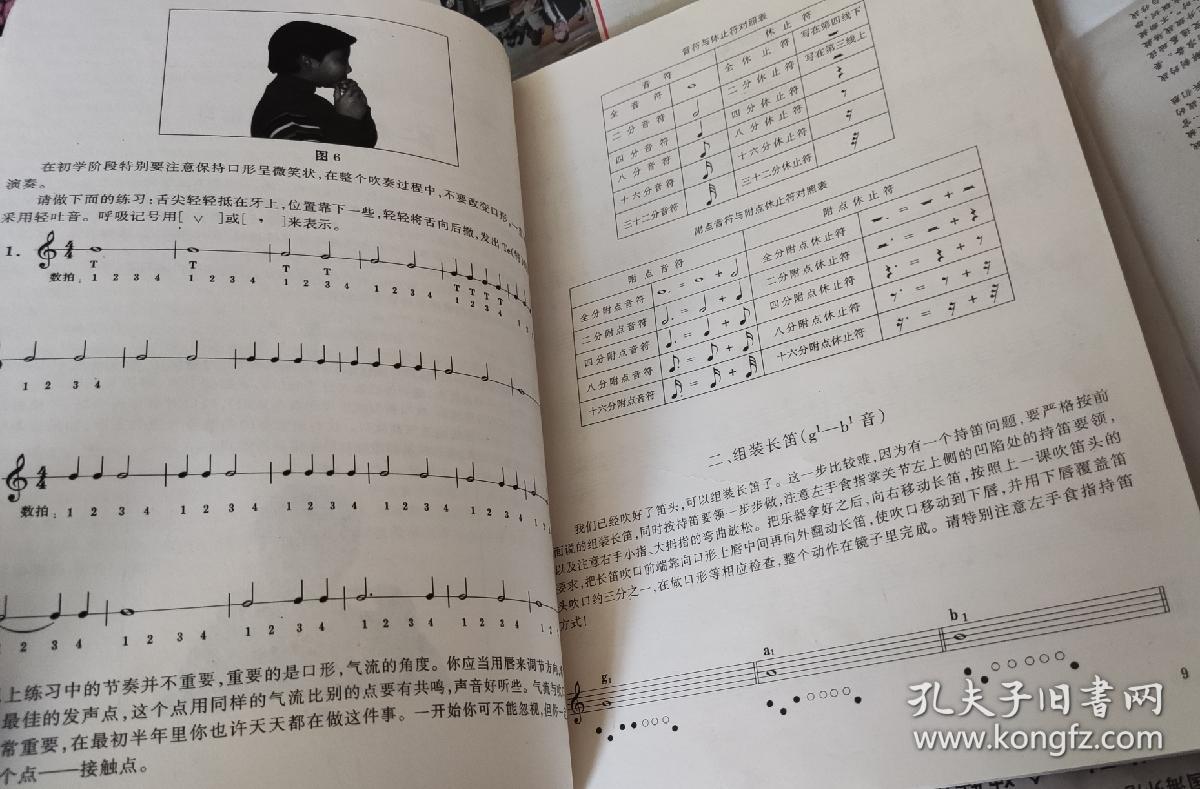 图6
在初学阶段特别要注意保持口形呈微笑状,在整个吹奏过程中,不要改变口形,
演奏。
请做下面的练习:舌尖轻轻抵在牙上,位置靠下一些,轻轻将舌向后撤,发出
采用轻吐音。呼吸记号用[ ∨ ]或[ , ]来表示。
1.
T T T T T T T T
数拍: 1 2 3 4 1 2 3 4 1 2 3 4 1 2 3 4
1 2 3 4
数拍: 1 2 3 4 1 2 3 4 1 2 3 4 1 2 3 4
1 2 3 4 1 2 3 4 1 2 3 4 1 2 3 4
上练习中的节奏并不重要,重要的是口形,气流的角度。你应当用唇来调节方向,
最佳的发声点,这个点用同样的气流比别的点要有共鸣,声音好听些。气流与
常重要,在最初半年里你也许天天都在做这件事。一开始你可不能忽视,但
个点——接触点。
音符与休止符对照表
音符 休止符
全音符 全休止符 写在第四线下
二分音符 二分休止符 写在第三线上
四分音符 四分休止符
八分音符 八分休止符
十六分音符 十六分休止符
三十二分音符 三十二分休止符
附点音符与附点休止符对照表
附点音符 附点休止符
全分附点音符 = + 全分附点休止符 = +
二分附点音符 = + 二分附点休止符 = +
四分附点音符 = + 四分附点休止符 = +
八分附点音符 = + 八分附点休止符 = +
十六分附点音符 = + 十六分附点休止符 = +
二、组装长笛(g¹—b¹音)
我们已经吹好了笛头,可以组装长笛了。这一步比较难,因为有一个持笛问题,要严格按前
面说的组装长笛,同时按持笛要领一步步做,注意左手食指掌关节左上侧的凹陷处的持笛要领,
以及注意右手小指、大拇指的弯曲放松。把乐器拿好之后,向右移动长笛,按照上一课吹笛头的
要求,把长笛吹口前端靠向口形上唇中间再向外翻动长笛,使吹口移动到下唇,并用下唇覆盖笛
头吹口约三分之一,在做口形等相应检查,整个动作在镜子里完成。请特别注意左手食指持笛
方式!
g1 a1 b1
9
孔夫子旧书网
www.kongfz.com